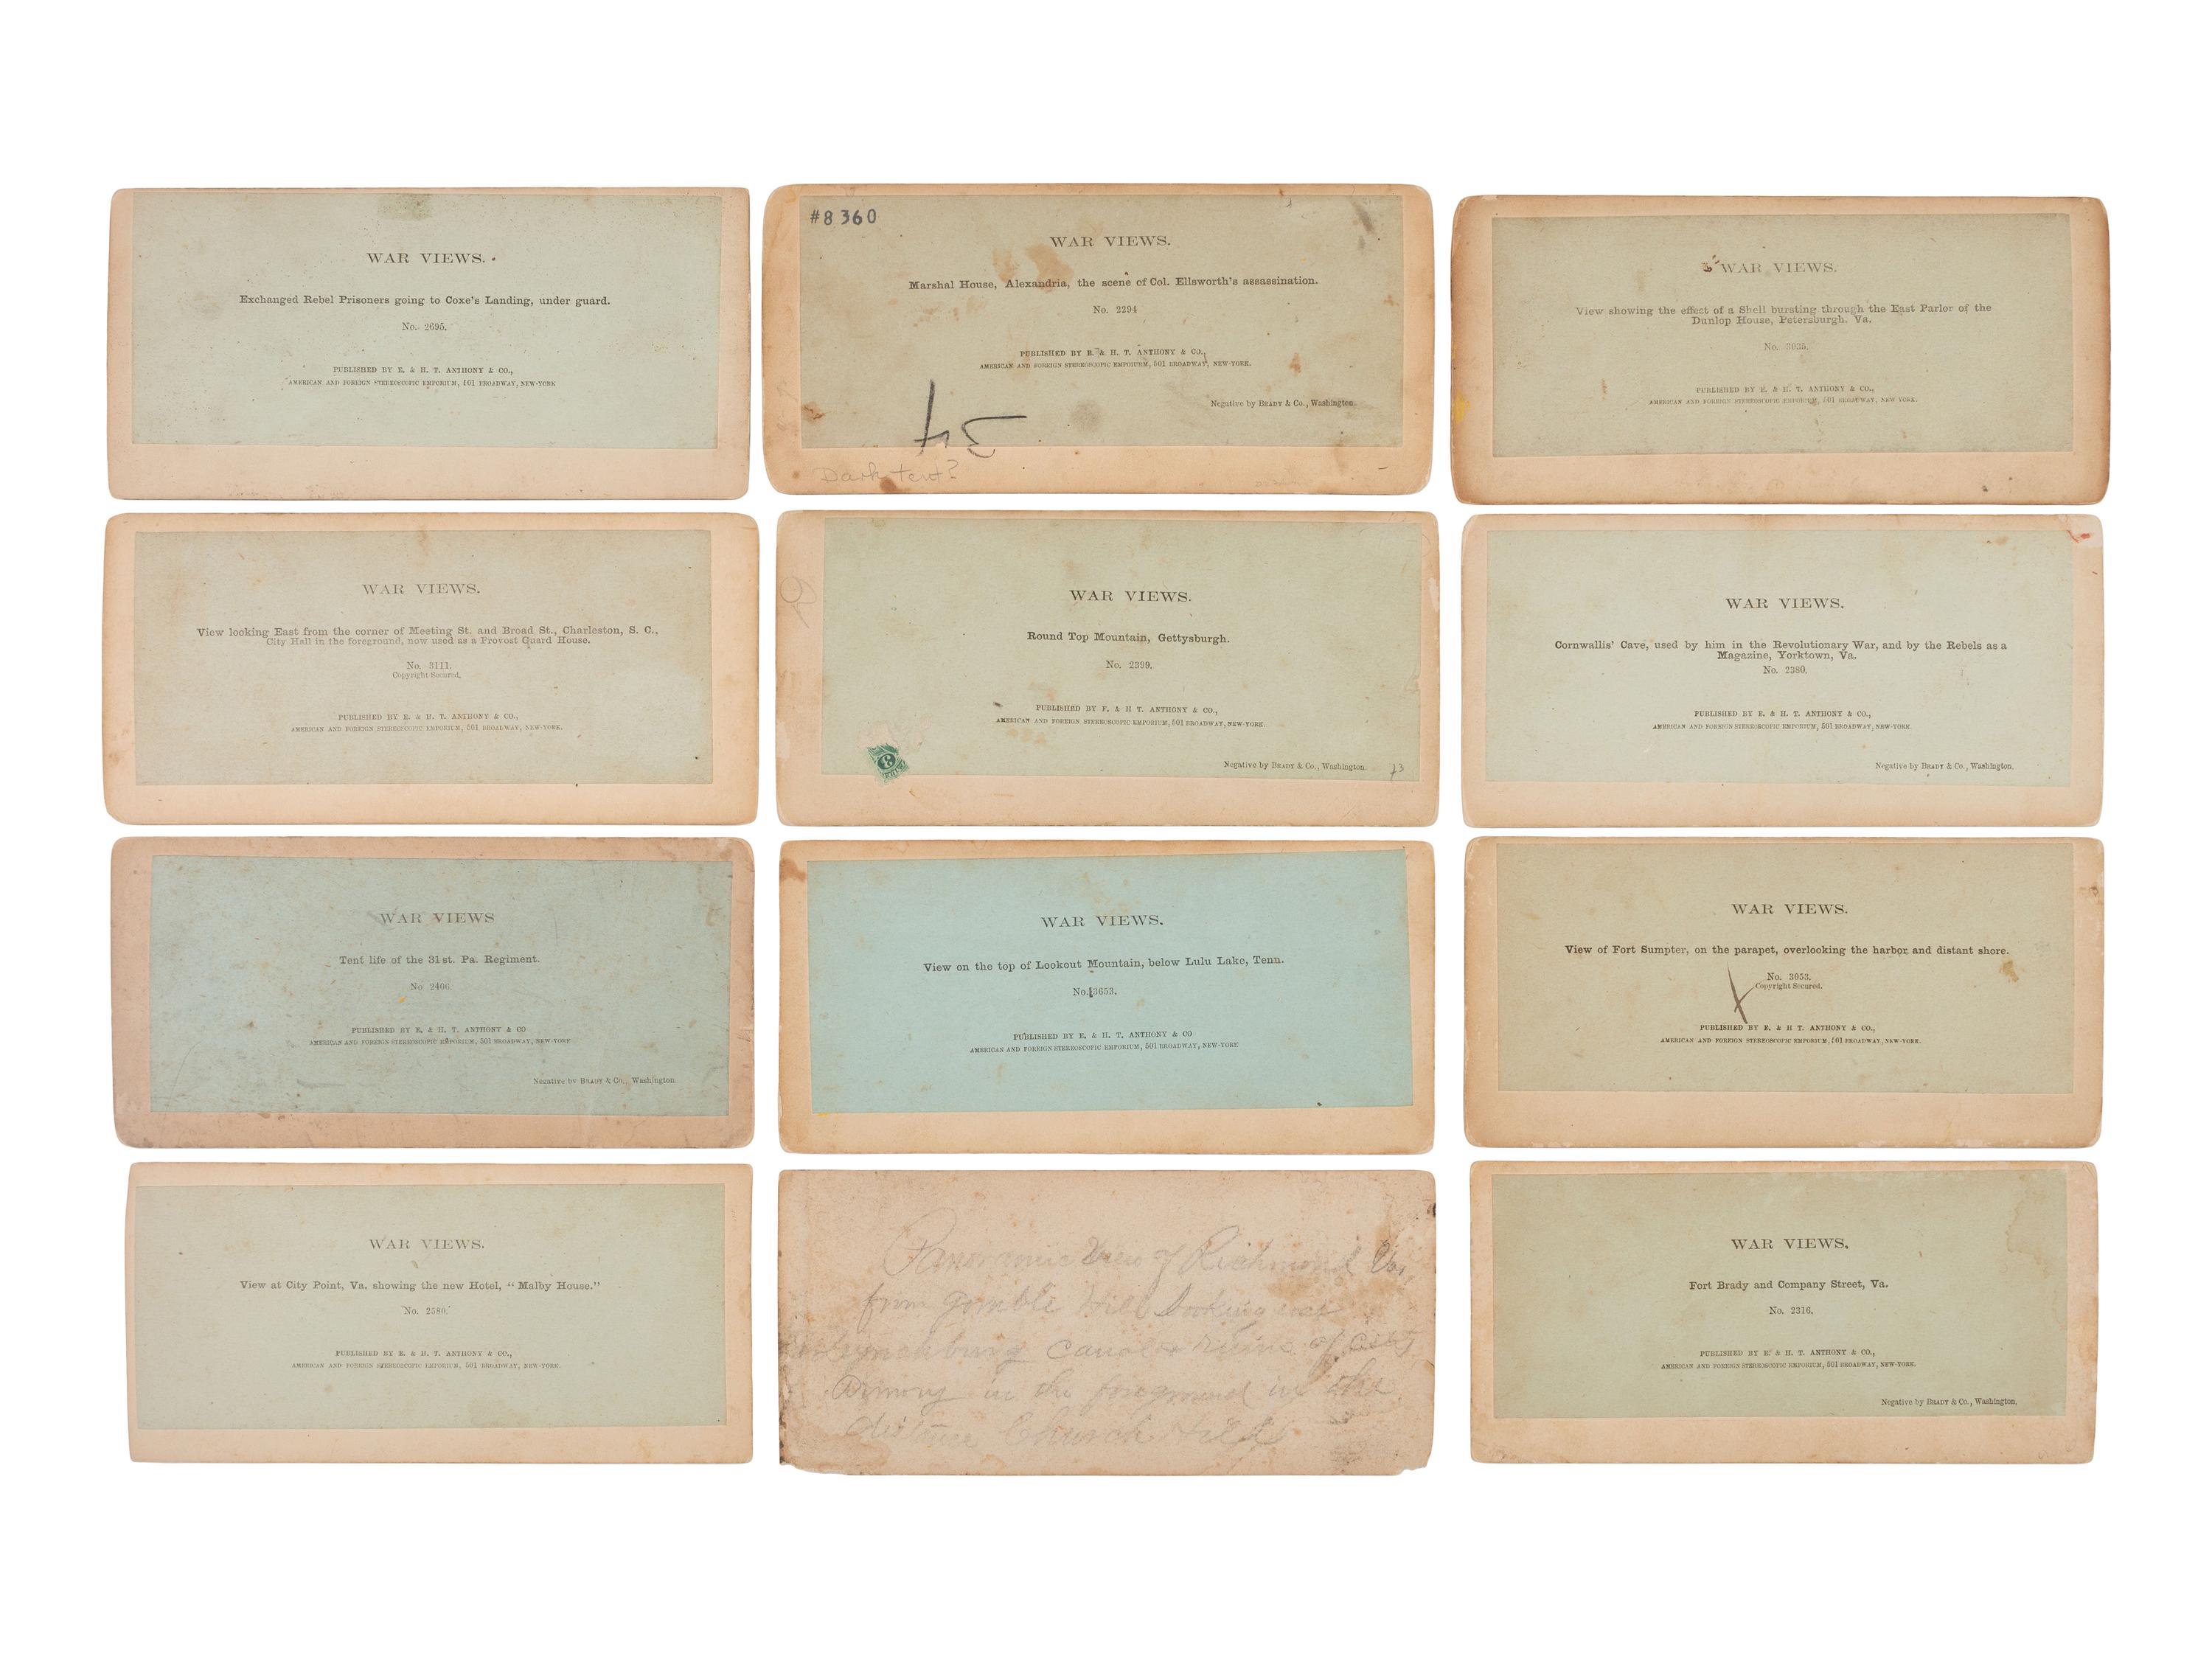 WAR VIEWS.
Exchanged Rebel Prisoners going to Coxe's Landing, under guard.
No. 2695.
PUBLISHED BY E. & H. T. ANTHONY & CO.,
AMERICAN AND FOREIGN STEREOSCOPIC EMPORIUM, 501 BROADWAY, NEW-YORK
#8360
WAR VIEWS.
Marshal House, Alexandria, the scene of Col. Ellsworth's assassination.
No. 2294
PUBLISHED BY E. & H. T. ANTHONY & CO.,
AMERICAN AND FOREIGN STEREOSCOPIC EMPORIUM, 501 BROADWAY, NEW-YORK.
Negative by BRADY & Co., Washington.
34
Dark tent?
WAR VIEWS.
View showing the effect of a Shell bursting through the East Parlor of the
Dunlop House, Petersburgh, Va.
No. 3035.
PUBLISHED BY E. & H. T. ANTHONY & CO.,
AMERICAN AND FOREIGN STEREOSCOPIC EMPORIUM, 501 BROADWAY, NEW YORK.
WAR VIEWS.
View looking East from the corner of Meeting St. and Broad St., Charleston, S. C.,
City Hall in the foreground, now used as a Provost Guard House.
No. 3111.
Copyright Secured.
PUBLISHED BY E. & H. T. ANTHONY & CO.,
AMERICAN AND FOREIGN STEREOSCOPIC EMPORIUM, 501 BROADWAY, NEW-YORK.
WAR VIEWS.
Round Top Mountain, Gettysburgh.
No. 2399.
PUBLISHED BY E. & H T. ANTHONY & CO.,
AMERICAN AND FOREIGN STEREOSCOPIC EMPORIUM, 501 BROADWAY, NEW-YORK.
3
Negative by BRADY & Co., Washington.
73
WAR VIEWS.
Cornwallis' Cave, used by him in the Revolutionary War, and by the Rebels as a
Magazine, Yorktown, Va.
No. 2380.
PUBLISHED BY E. & H. T. ANTHONY & CO.,
AMERICAN AND FOREIGN STEREOSCOPIC EMPORIUM, 501 BROADWAY, NEW-YORK.
Negative by BRADY & Co., Washington.
WAR VIEWS
Tent life of the 31st. Pa. Regiment.
No 2406
PUBLISHED BY E. & H. T. ANTHONY & CO
AMERICAN AND FOREIGN STEREOSCOPIC EMPORIUM, 501 BROADWAY, NEW-YORK
Negative by BRADY & Co., Washington.
WAR VIEWS.
View on the top of Lookout Mountain, below Lulu Lake, Tenn.
No. 3653.
PUBLISHED BY E. & H. T. ANTHONY & CO
AMERICAN AND FOREIGN STEREOSCOPIC EMPORIUM, 501 BROADWAY, NEW-YORK
WAR VIEWS.
View of Fort Sumpter, on the parapet, overlooking the harbor and distant shore.
No. 3053.
Copyright Secured.
PUBLISHED BY E. & H T. ANTHONY & CO.,
AMERICAN AND FOREIGN STEREOSCOPIC EMPORIUM, 501 BROADWAY, NEW-YORK.
WAR VIEWS.
View at City Point, Va. showing the new Hotel, "Malby House."
No. 2580.
PUBLISHED BY E. & H. T. ANTHONY & CO.,
AMERICAN AND FOREIGN STEREOSCOPIC EMPORIUM, 501 BROADWAY, NEW-YORK.
Panoramic View of Richmond Va,
from Gamble Hill Looking east
Lynchburg Canal & ruins of City
Armory in the foreground in the
distance Church Hill
WAR VIEWS.
Fort Brady and Company Street, Va.
No. 2316.
PUBLISHED BY E. & H. T. ANTHONY & CO.,
AMERICAN AND FOREIGN STEREOSCOPIC EMPORIUM, 501 BROADWAY, NEW-YORK.
Negative by BRADY & Co., Washington.